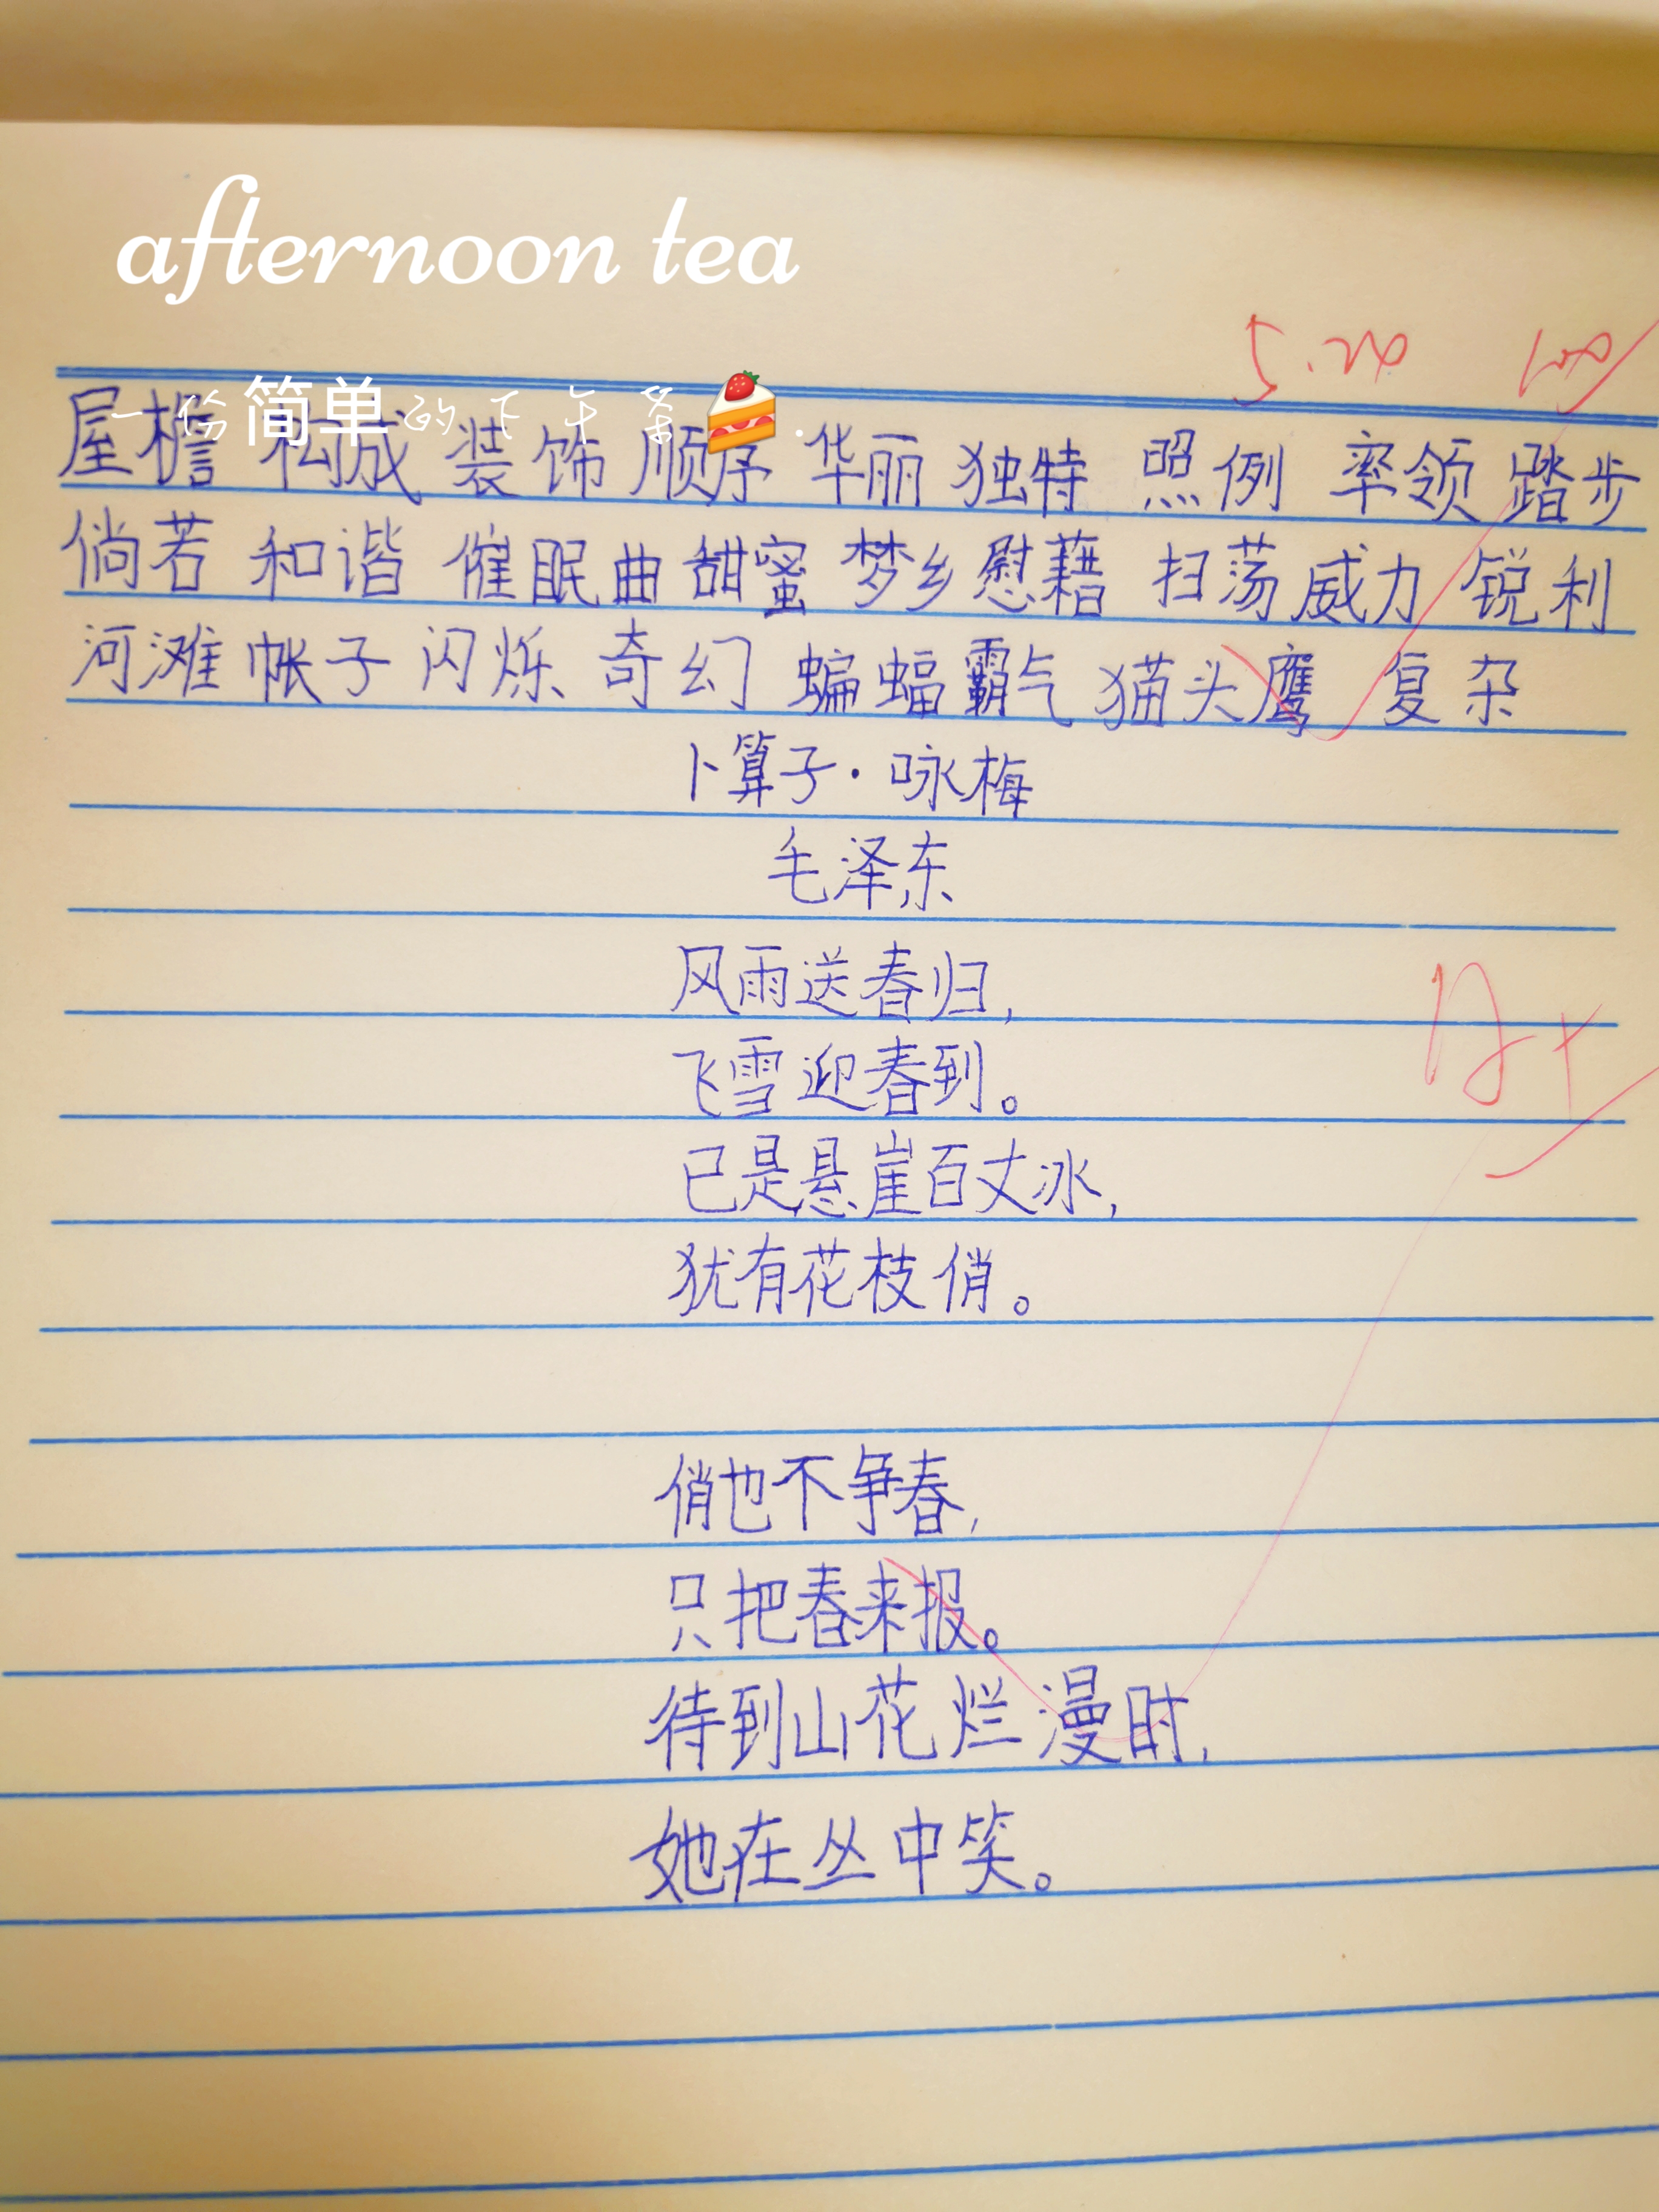 afternoon tea
5.20 100
一份简单的下午茶
屋檐 构成 装饰 顺序 华丽 独特 照例 率领 踏步
倘若 和谐 催眠曲 甜蜜 梦乡 慰藉 扫荡 威力 锐利
河滩 帐子 闪烁 奇幻 蝙蝠 霸气 猫头鹰 复杂
卜算子·咏梅
毛泽东
风雨送春归,
飞雪迎春到。
A+
已是悬崖百丈冰,
犹有花枝俏。
俏也不争春,
只把春来报。
待到山花烂漫时,
她在丛中笑。